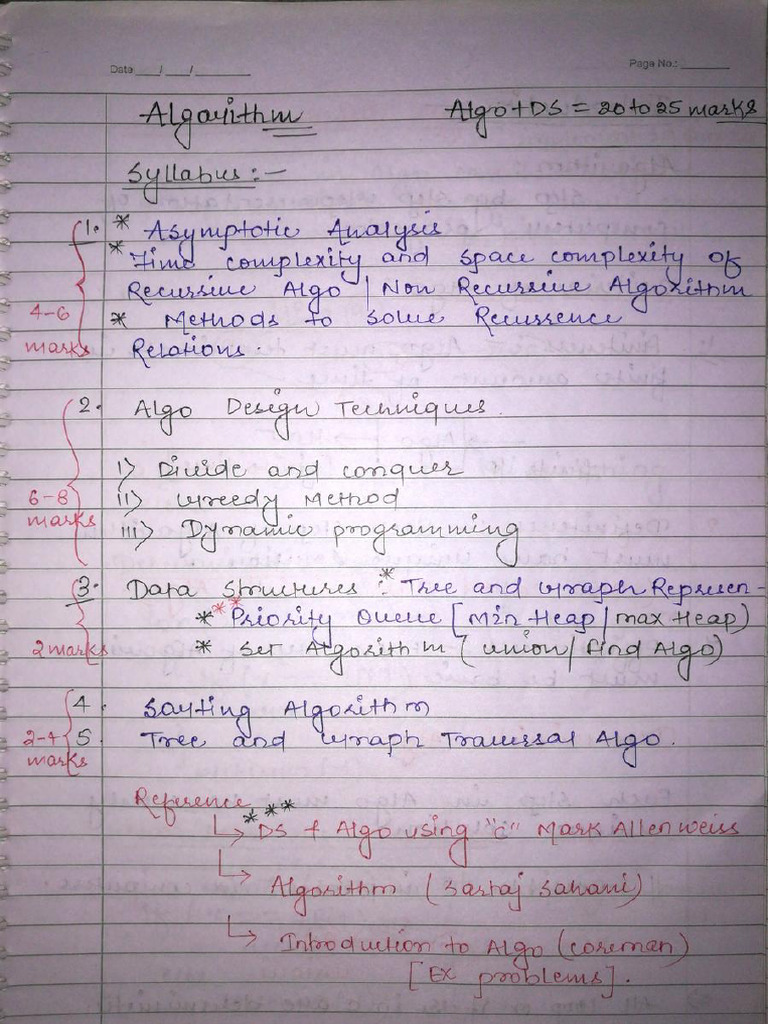 Date ___/___/______
Page No.: ______
Algorithm
Algo + DS = 20 to 25 marks
Syllabus :-
1. * Asymptotic Analysis
* Time complexity and space complexity of
Recursive Algo / Non Recursive Algorithm
4-6 marks
* Methods to solve Recurrence
Relations.
2. Algo Design Techniques.
i) Divide and conquer
6-8 marks
ii) Greedy Method
iii) Dynamic programming
3. Data Structures : * Tree and Graph Represen-
** Priority Queue [Min Heap / max Heap)
2 marks
* Set Algorithm ( union / find Algo)
4. Sorting Algorithm
2-4 marks
5. Tree and Graph Traversal Algo.
Reference
*** DS & Algo using "C" Mark Allen weiss
Algorithm ( Sartaj Sahani)
Introduction to Algo (coreman)
[Ex problems].